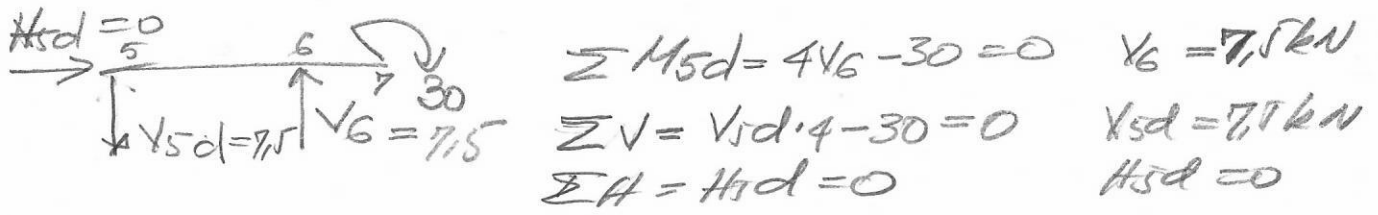 H5d = 0
5 6 7 30
V5d = 7,5 V6 = 7,5
ΣM5d = 4V6 - 30 = 0 V6 = 7,5 kN
ΣV = V5d·4 - 30 = 0 V5d = 7,5 kN
ΣH = H5d = 0 H5d = 0